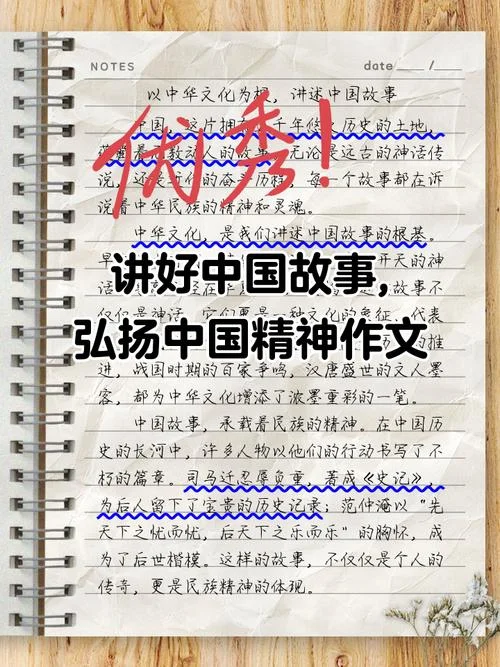 NOTES
date /
以中华文化为根，讲述中国故事
优秀！
中国，这片拥有 千年悠 历史的土地，
数动人的故事。无论是远古的神话传
说，还是近代的奋斗历程，每一个故事都在诉
说着中华民族的精神和灵魂。
中华文化，是我们讲述中国故事的根基。
早 开天的神
讲好中国故事，
话 故事不
仅仅是神话，它们更是一种文化的象征，代表
弘扬中国精神作文
的推
进，战国时期的百家争鸣，汉唐盛世的文人墨
客，都为中华文化增添了浓墨重彩的一笔。
中国故事，承载着民族的精神。在中国历
史的长河中，许多人物以他们的行动书写了不
朽的篇章。司马迁忍辱负重，著成《史记》，
为后人留下了宝贵的历史记录；范仲淹以“先
天下之忧而忧，后天下之乐而乐”的胸怀，成
为了后世楷模。这样的故事，不仅仅是个人的
传奇，更是民族精神的体现。